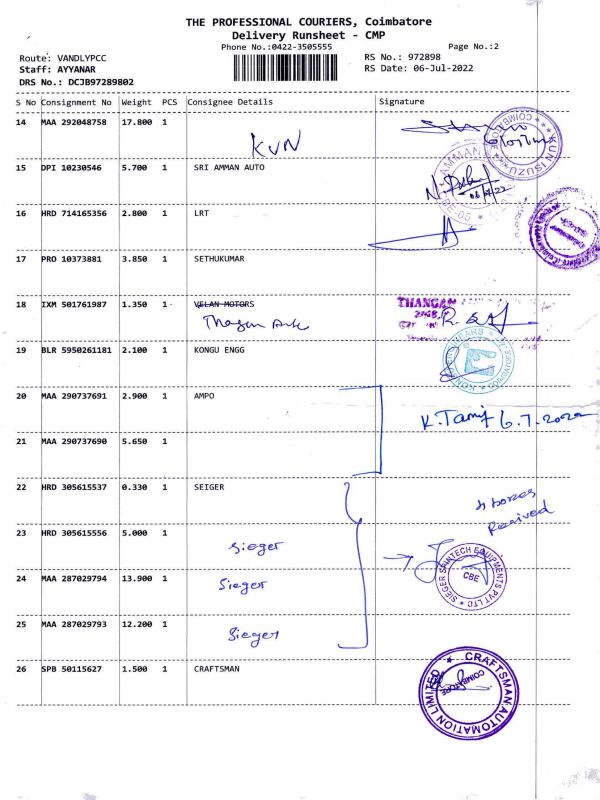 THE PROFESSIONAL COURIERS, Coimbatore
Delivery Runsheet - CMP
Phone No.:0422-3505555
Page No.:2
Route: VANDLYPCC
RS No.: 972898
Staff: AYYANAR
RS Date: 06-Jul-2022
DRS No.: DCJB97289802
S No Consignment No Weight PCS Consignee Details Signature
14 MAA 292048758 17.800 1
KVN
KUN ISUZU
COIMBATORE
15 DPI 10230546 5.700 1 SRI AMMAN AUTO
16 HRD 714165356 2.800 1 LRT
17 PRO 10373881 3.850 1 SETHUKUMAR
18 IXM 501761987 1.350 1 VELAN MOTORS
THANGAM
19 BLR 5950261181 2.100 1 KONGU ENGG
20 MAA 290737691 2.900 1 AMPO
K. Tamij 6.7.2022
21 MAA 290737690 5.650 1
22 HRD 305615537 0.330 1 SEIGER
4 boxes
Received
23 HRD 305615556 5.000 1
Sieger
SIEGER SPINTECH EQUIPMENTS PVT LTD
CBE
24 MAA 287029794 13.900 1
Sieger
25 MAA 287029793 12.200 1
Sieger
26 SPB 50115627 1.500 1 CRAFTSMAN
CRAFTSMAN AUTOMATION LIMITED
COIMBATORE